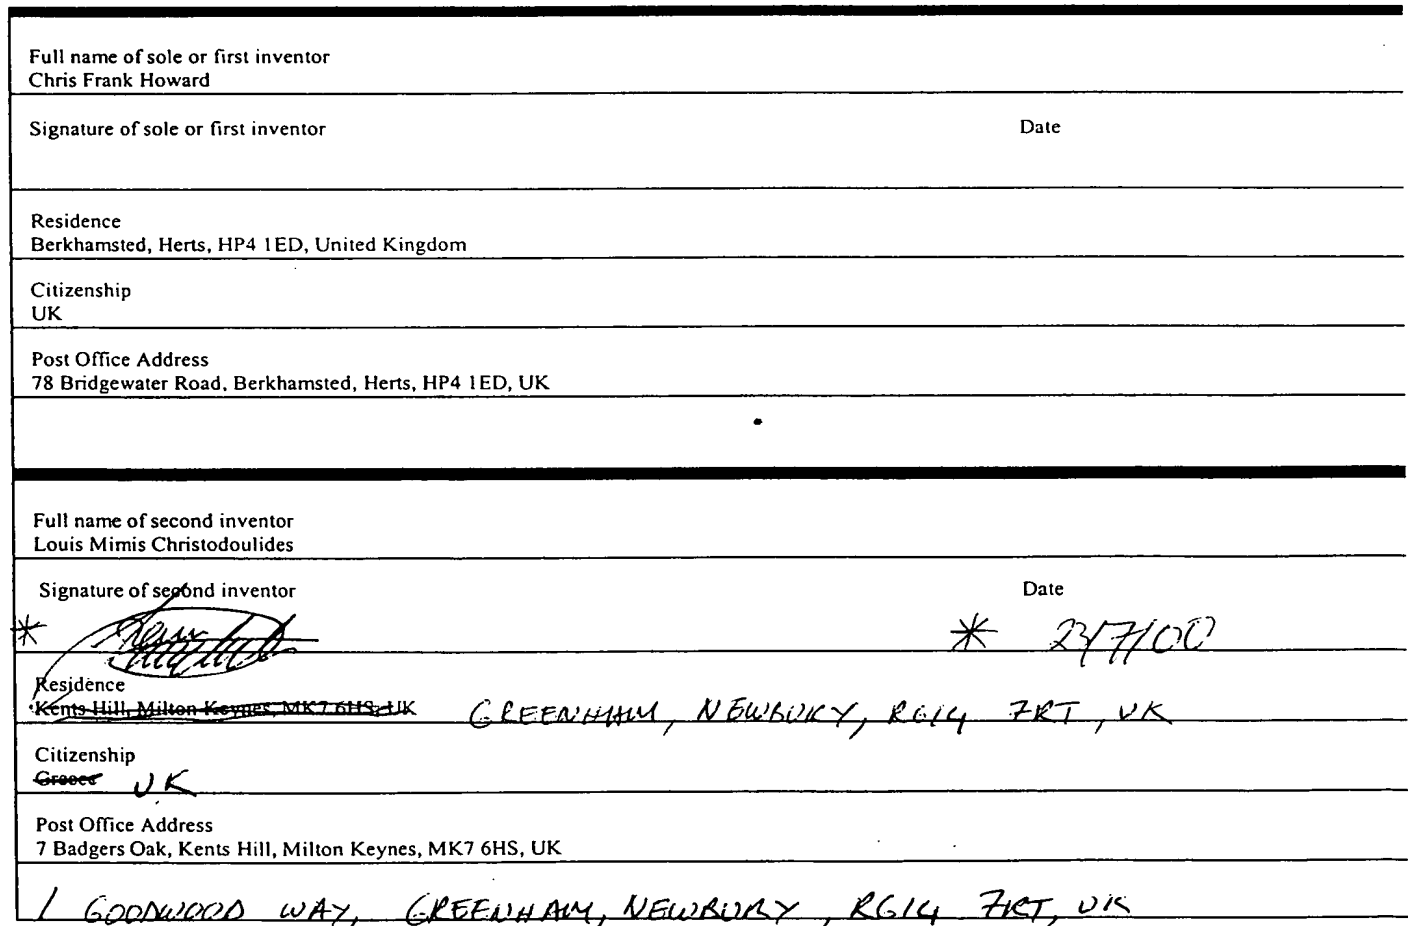 Full name of sole or first inventor
Chris Frank Howard
Signature of sole or first inventor Date
Residence
Berkhamsted, Herts, HP4 1ED, United Kingdom
Citizenship
UK
Post Office Address
78 Bridgewater Road, Berkhamsted, Herts, HP4 1ED, UK
Full name of second inventor
Louis Mimis Christodoulides
Signature of second inventor Date
* * 23/7/00
Residence
Kents Hill, Milton Keynes, MK7 6HS, UK GREENHAM, NEWBURY, RG14 7RT, UK
Citizenship
Greece UK
Post Office Address
7 Badgers Oak, Kents Hill, Milton Keynes, MK7 6HS, UK
1 GOODWOOD WAY, GREENHAM, NEWBURY, RG14 7RT, UK